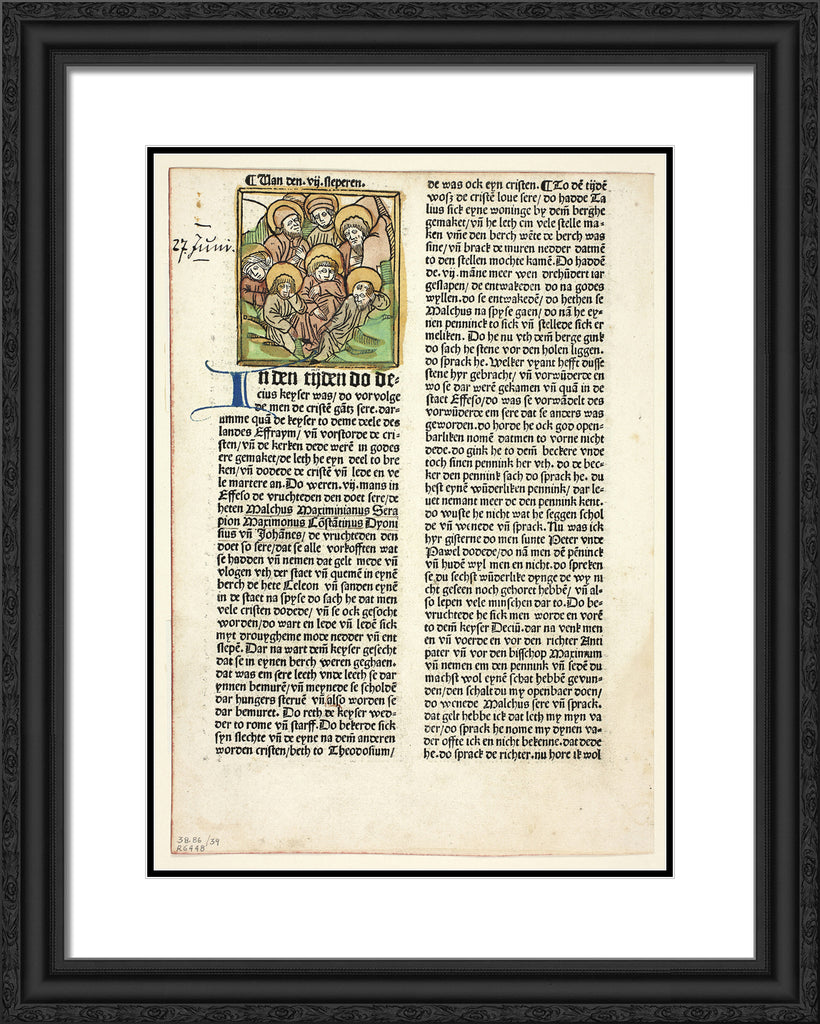 ¶ Van den. vij. sleperen.
27. Juni.
In den tijden do de-
cius keyser was/ do vorvolge
de men de cristē gātz sere. dar-
umme quā de keyser to deme deele des
landes Effraym/ vn̄ vorstorde de cri-
sten/ vn̄ de kerken dede werē in godes
ere gemaket/ de leth he eyn deel to bre
ken/ vn̄ dodede de cristē vn̄ lede en ve
le martere an. Do weren. vij. mans in
Effeso de vruchteden den doet sere/ de
heten Malchus Maximinianus Sera
pion Maximonus Cōstātinus Dyoni
sius vn̄ Johānes/ de vruchteden den
doet so sere/ dat se alle vorkofften wat
se hadden vn̄ nemen dat gelt mede vn̄
vlogen vth der staet vn̄ quemē in eynē
berch de hete Celeon vn̄ sanden eynē
in de staet na spyse do sach he dat men
vele cristen dodede/ vn̄ se ock gesocht
worden/ do wart en lede vn̄ ledē sick
myt drouygheme mode nedder vn̄ ent
slepē. Dar na wart dem̄ keyser gesecht
dat se in eynen berch weren geghaen.
dat was em sere leeth vnde leeth se dar
ynnen bemurē/ vn̄ meynede se scholdē
dar hungers steruē vn̄ also worden se
dar bemuret. Do reth de keyser wed-
der to rome vn̄ starff. Do bekerde sick
syn slechte vn̄ de eyne na dem̄ anderen
worden cristen/ beth to Theodosium/
de was ock eyn cristen. ¶ To dē tijdē
wosz de cristē loue sere/ do hadde Ta
lius sick eyne woninge by dem̄ berghe
gemaket/ vn̄ he leth em vele stelle ma-
ken vm̄e den berch wēte de berch was
sine/ vn̄ brack de muren nedder datmē
to den stellen mochte kamē. Do haddē
de. vij. māne meer wen drehūdert iar
geslapen/ de entwakeden do na godes
wyllen. do se entwakedē/ do hethen se
Malchus na spyse gaen/ do nā he ey-
nen penninck to sick vn̄ stellede sick er
meliken. Do he nu vth dem̄ berge gink
do sach he stene vor den holen liggen.
do sprack he. Welker vyant hefft dusse
stene hyr gebracht/ vn̄ vorwūderde en
wo se dar werē gekamen vn̄ quā in de
staet Effeso/ do was se vorwādelt des
vorwūderde em sere dat se anders was
geworden. do horde he ock god open-
barliken nomē datmen to vorne nicht
dede. do gink he to dem̄ beckere vnde
toch sinen pennink her vth. do de bec-
ker den pennink sach do sprack he. du
hest eynē wūderliken pennink/ dar le-
uet nemant meer de den pennink kent.
do wuste he nicht wat he seggen schol
de vn̄ wenede vn̄ sprack. Nu was ick
hyr gisterne do men sunte Peter vnde
Pawel dodede/ do nā men dē pēninck
vn̄ hudē wyl men en nicht. do spreken
se du sechst wūderlike dynge de wy ni
cht geseen noch gehoret hebbē/ vn̄ al-
so lepen vele minschen dar to. Do be-
vruchtede he sick men worde en vorē
to dem̄ keyser Deciū. dar na venk men
en vn̄ voerde en vor den richter Anti
pater vn̄ vor den bisschop Maximum
vn̄ nemen em den pennink vn̄ sedē du
machst wol eynē schat hebbē gevun-
den/ den schalt du my openbaer doen/
do wenede Malchus sere vn̄ sprack.
dat gelt hebbe ick dat leth my myn va
der/ do sprack he nome my dynen va-
der offte ick en nicht bekenne. dat dede
he. do sprack de richter. nu hore ik wol
38.86/39
R6448